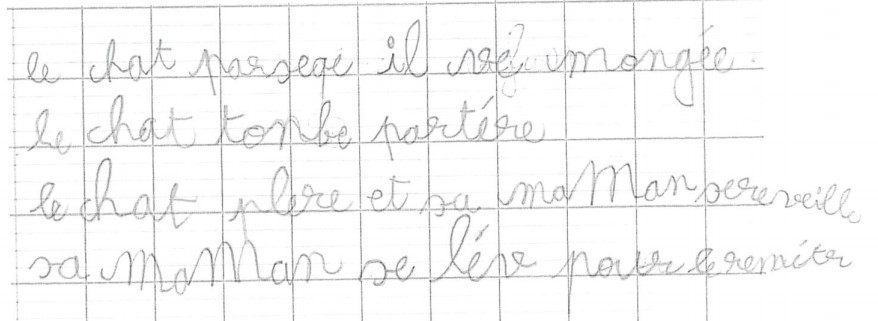 le chat parsege il vé mongée
le chat tonbe partére
le chat plere et sa maMan sereveille
sa maMan se léve pour le remétr